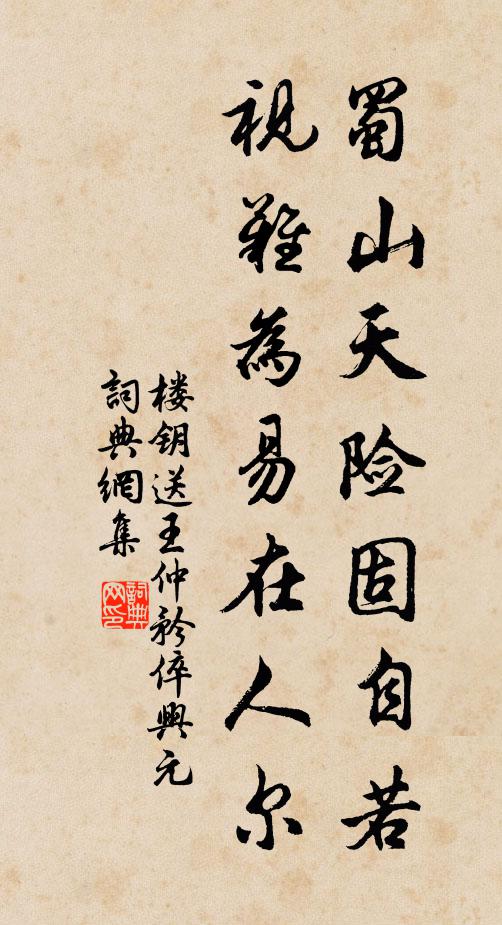 蜀山天险固自若
视难為易在人尔
楼钥送王仲矜倅興元
詞典網集
詞典网印